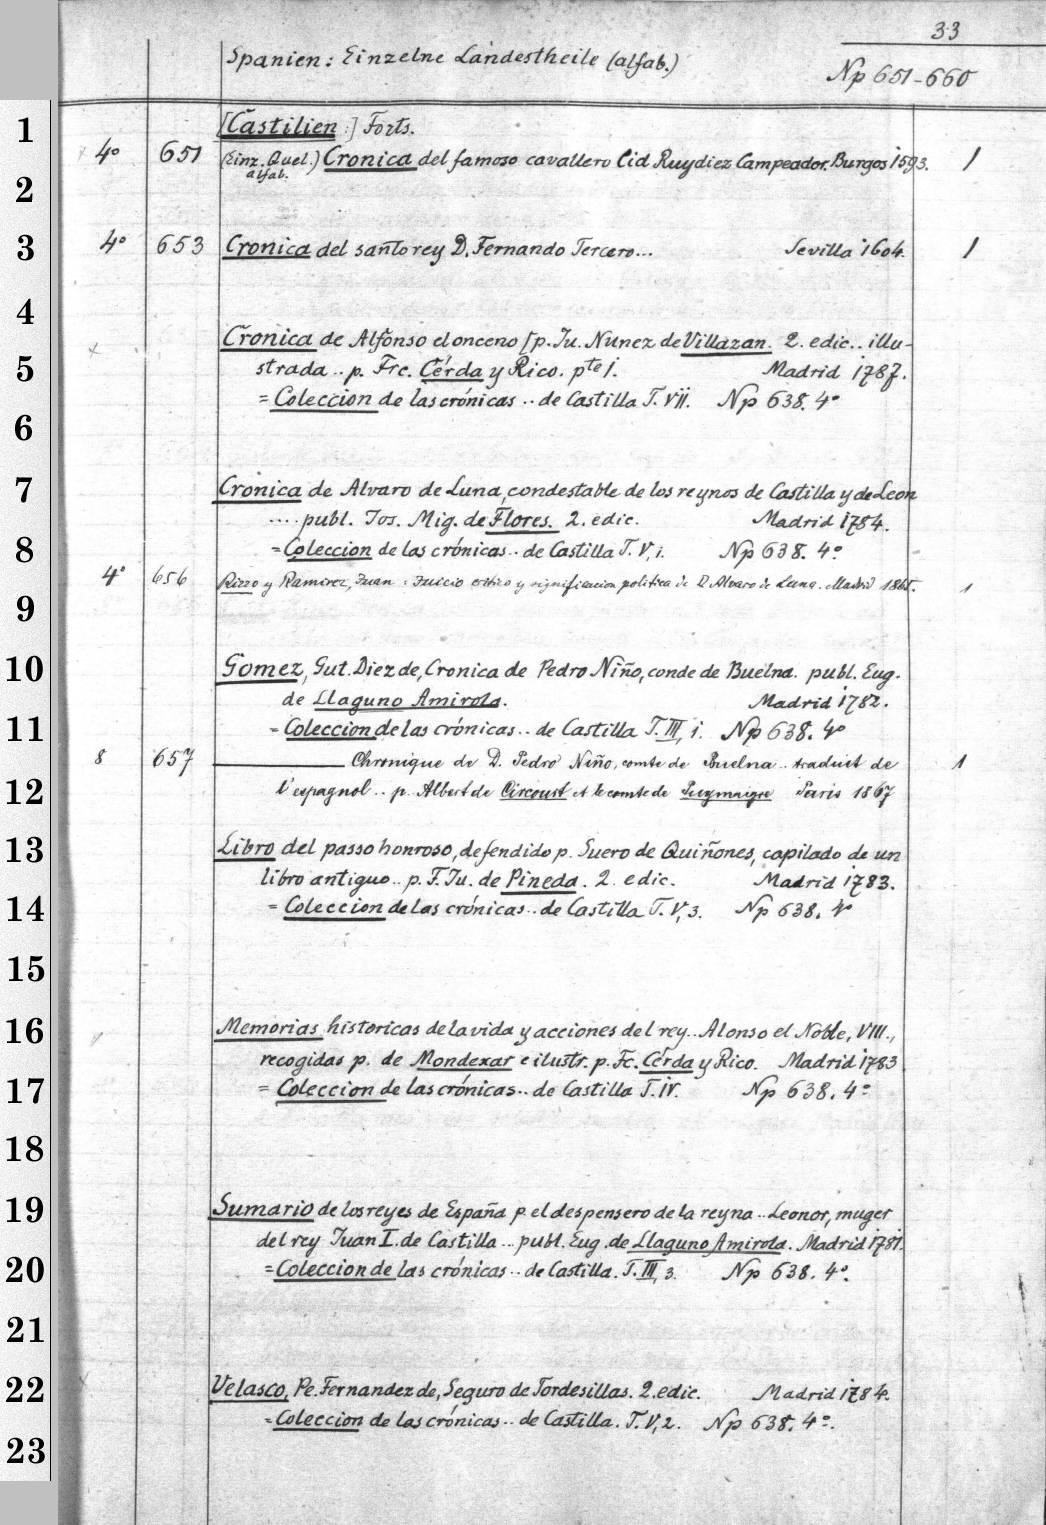 33
Spanien: Einzelne Landestheile (alfab.)
Np 651-660
1
[Castilien:] Forts.
4° 651 (Einz. Quel.) Cronica del famoso cavallero Cid Ruydiez Campeador. Burgos 1593. 1
alfab.
2
3 4° 653 Cronica del santo rey D. Fernando Tercero... Sevilla 1604. 1
4
Cronica de Alfonso el onceno [p. Ju. Nunez de Villazan. 2. edic.. illu-
5 strada .. p. Frc. Cérda y Rico. pte 1. Madrid 1787.
= Coleccion de las crónicas .. de Castilla T. VII. Np 638. 4°
6
7 Cronica de Alvaro de Luna, condestable de los reynos de Castilla y de Leon
.... publ. Jos. Mig. de Flores. 2. edic. Madrid 1784.
8 = Coleccion de las crónicas .. de Castilla T. V, 1. Np 638. 4°
4° 656 Rizzo y Ramirez, Juan: Juicio critico y significacion politica de D. Alvaro de Luna. Madrid 1865. 1
9
10 Gomez, Gut. Diez de, Cronica de Pedro Niño, conde de Buelna. publ. Eug.
de Llaguno Amirola. Madrid 1782.
11 = Coleccion de las crónicas .. de Castilla T. III, 1. Np 638. 4°
8 657 ——— Chronique de D. Pedro Niño, comte de Buelna .. traduit de 1
12 l'espagnol .. p. Albert de Circourt et le comte de Puymaigre Paris 1867
13 Libro del passo honroso, defendido p. Suero de Quiñones, capilado de un
libro antiguo .. p. F. Ju. de Pineda. 2. edic. Madrid 1783.
14 = Coleccion de las crónicas .. de Castilla T. V, 3. Np 638. 4°
15
16 Memorias historicas de la vida y acciones del rey .. Alonso el Noble, VIII.,
recogidas p. de Mondexar e ilustr. p. Fc. Cérda y Rico. Madrid 1783
17 = Coleccion de las crónicas .. de Castilla T. IV. Np 638. 4°
18
19 Sumario de los reyes de España p. el despensero de la reyna .. Leonor, muger
del rey Juan I. de Castilla ... publ. Eug. de Llaguno Amirola. Madrid 1781.
20 = Coleccion de las crónicas .. de Castilla. T. III, 3. Np 638. 4°.
21
22 Velasco, Pe. Fernandez de, Seguro de Tordesillas. 2. edic. Madrid 1784.
= Coleccion de las crónicas .. de Castilla. T. V, 2. Np 638. 4°.
23